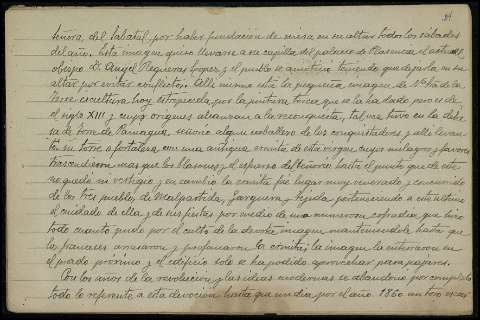 24
señora del Sabatel por haber fundación de misa en su altar todos los sábados
del año. Esta imagen quiso llevarse a su capilla del palacio de Plasencia el actual
obispo D. Angel Regueras Lopez y el pueblo se amotinó teniendo que dejarla en su
altar por evitar conflictos. Allí mismo está la pequeña imagen de Ntra Sra de la
Torre escultura hoy estropeada por la pintura tosca que se la ha dado pero es de
el siglo XIII y cuyo origenes alcanzan a la reconquista, tal vez tuvo en la dehe
sa de torre de Pamagua, señorio algun caballero de los conquistadores y allí levan
tó su torre o fortaleza, con una antigua ermita de esta virgen, cuyos milagros y favores
trascendieron mas que los blasones y el esfuerzo del Señorio hasta el punto que de este
no quedó ni vestigio y en cambio la ermita fué lugar muy venerado y concurrido
de los tres pueblos, de Malpartida, Gargüera y Tejeda perteneciendo a este ultimo
el cuidado de ella y de sus fiestas por medio de una numerosa cofradia que hizo
todo cuanto pudo por el culto de la devota imagen manteniendola hasta que
los franceses arrasaron y profanaron la ermita; la imagen la enterraron en
el prado próximo y el edificio solo se ha podido aprovechar para pajares.
Con los años de la revolución y las ideas modernas se abandonó por completo
todo lo referente a esta devoción hasta que un dia por el año 1860 un toro escar